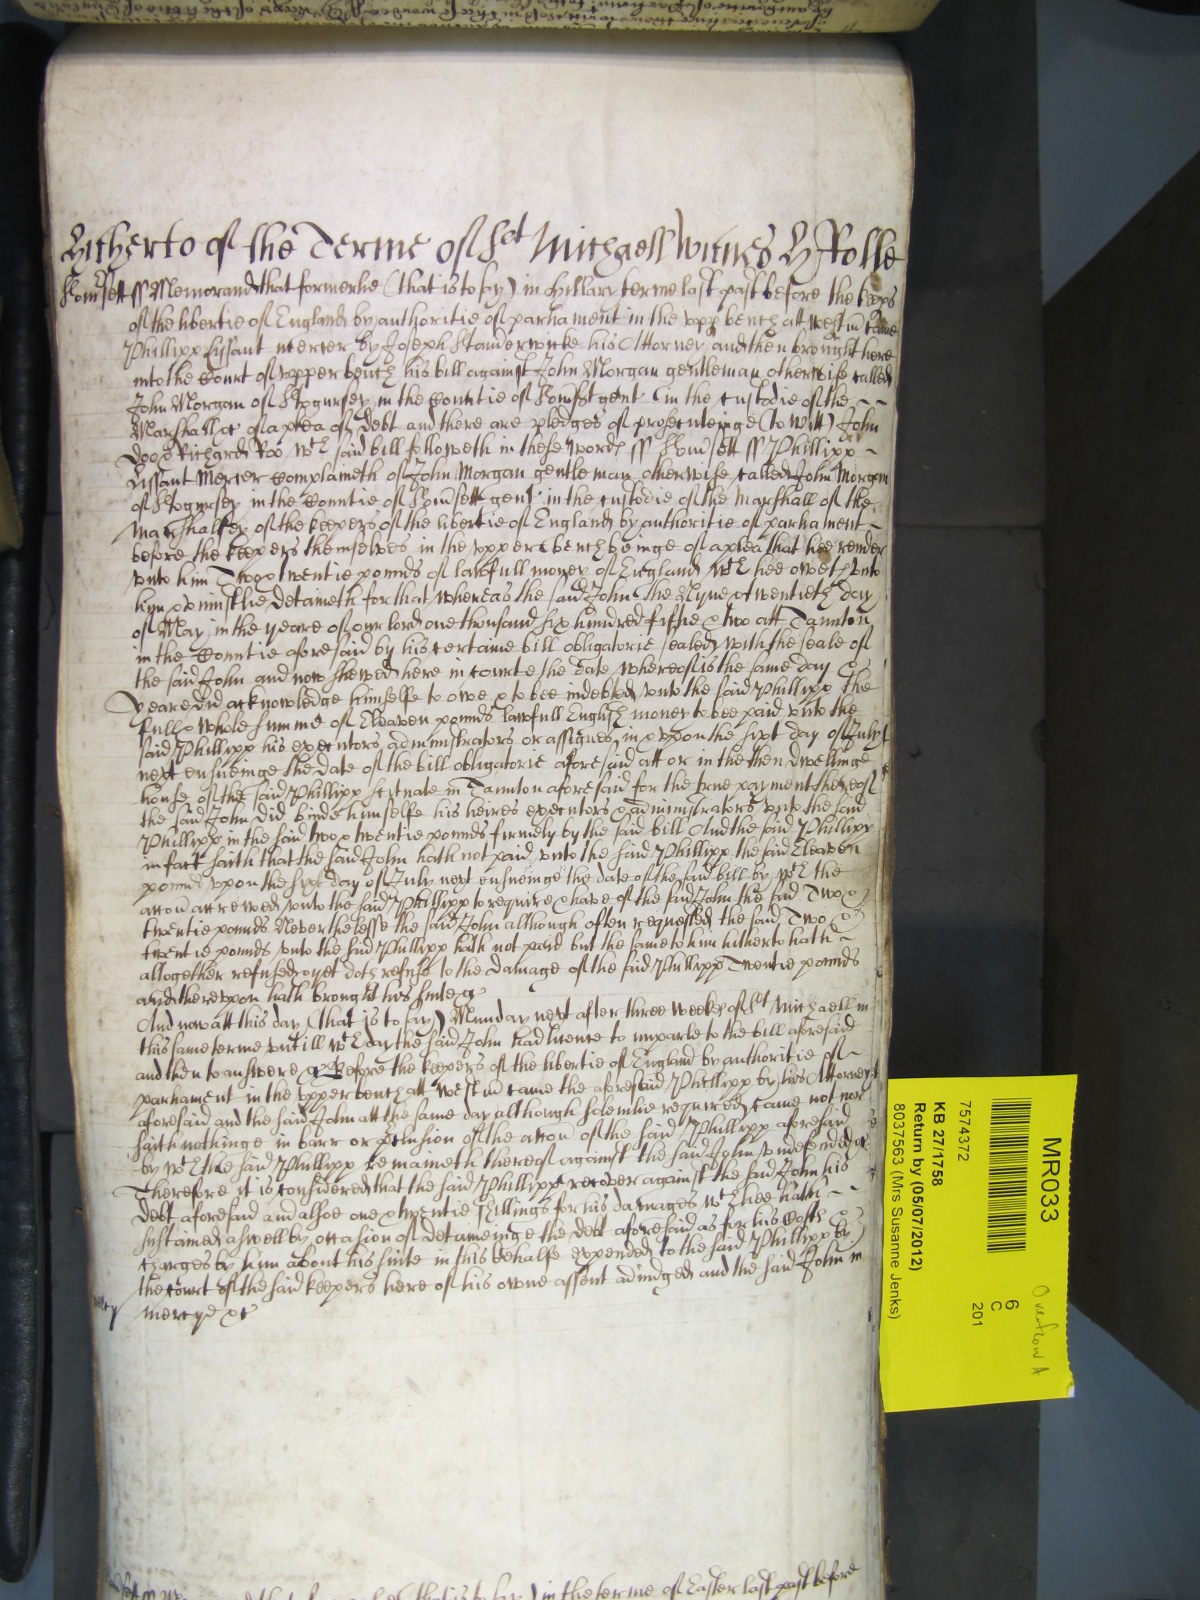 Hitherto of the Terme of St Michaell Witnes H Rolle
Somsett ss Memorand that formerlie (that is to say) in Hillary terme last past before the keeps
of the libertie of England by authoritie of parliament in the upp bench att Westm came
Phillipp Lissant mercer by Joseph Standerwicke his Attorney and then brought here
into the Court of upper bench his bill against John Morgan gentleman otherwise called
John Morgan of Stogursey in the Countie of Somst gent in the custodie of the
Marshall &c of a plea of Debt and there are pledges of prosecuteinge (to Witt) John
Doo & Richard Roo wch said bill followeth in these words ss Somsett ss Phillipp
Lissant Mercer Complaineth of John Morgan gentleman otherwise called John Morgan
of Stogursey in the Countie of Somsett gent in the custodie of the Marshall of the
Marshalsey of the keepers of the libertie of England by authoritie of parliament
before the keepers themselves in the upper bench beinge of a plea that hee render
unto him Two & twentie pounds of lawfull money of England wch hee oweth unto
him & uniustlie detaineth for that whereas the said John the Nyne & twentieth day
of May in the yeare of our lord one thousand six hundred fiftie & two att Taunton
in the Countie aforesaid by his certaine bill obligatorie sealed with the seale of
the said John and now shewed here in courte the date whereof is the same day &
yeare did acknowledge himselfe to owe & to bee indebted unto the said Phillipp the
full & whole summe of Eleaven pounds lawfull English money to bee paid unto the
said Phillipp his executors administrators or assignes in & upon the sixt day of July
next ensueinge the date of the bill obligatorie aforesaid att or in the then dwellinge
house of the said Phillipp scituate in Taunton aforesaid for the true payment thereof
the said John did binde himselfe his heires executors & administrators unto the said
Phillipp in the said two & twentie pounds firmely by the said bill And the said Phillipp
in fact saith that the said John hath not paid unto the said Phillipp the said Eleaven
pounds upon the sixt day of July next ensueinge the date of the said bill by wch the
accon accrewed unto the said Phillipp to require & have of the said John the said Two &
twentie pounds Neverthelesse the said John although often requested the said Two &
twentie pounds unto the said Phillipp hath not paid but the same to him hitherto hath
altogether refused & yet doth refuse to the damage of the said Phillipp Twentie pounds
and thereupon hath brought his suite &c
And now att this day (that is to say) Munday next after three weekes of St Michaell in
this same terme untill wch day the said John had licence to imparle to the bill aforesaid
and then to answere &c before the keepers of the libertie of England by authoritie of
parliament in the upper bench att Westm came the aforesaid Phillipp by his Attorney
aforesaid and the said John att the same day although solemlie required came not nor
saith nothinge in barr or pclusion of the accon of the said Phillipp aforesaid
by wch the said Phillipp remaineth thereof against the said John undefended &c
Therefore it is considered that the said Phillipp recover against the said John his
debt aforesaid and alsoe one & twentie shillings for his damages wch hee hath
sustained aswell by occasion of detaineinge the debt aforesaid as for his Costs &
charges by him about his suite in this behalfe expended to the said Phillipp by
the court of the said keepers here of his owne assent adiudged and the said John in
mercye &c
in the terme of Easter last past before
MR033
Overflow A
6
C
201
7574372
KB 27/1758
Return by (05/07/2012)
8037563 (Mrs Susanne Jenks)